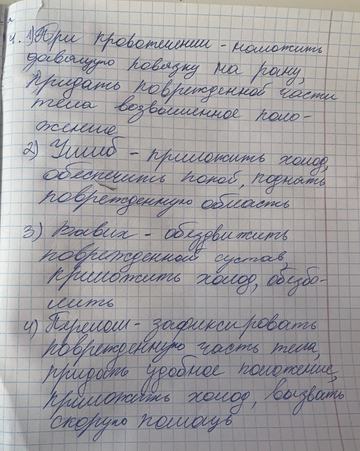 4. 1) При кровотечении - наложить
давящую повязку на рану,
придать поврежденной части
тела возвышенное поло-
жение
2) Ушиб - приложить холод,
обеспечить покой, поднять
поврежденную область
3) Вывих - обездвижить
поврежденный сустав,
приложить холод, обезбо-
лить
4) Перелом - зафиксировать
поврежденную часть тела,
придать удобное положение,
приложить холод, вызвать
скорую помощь